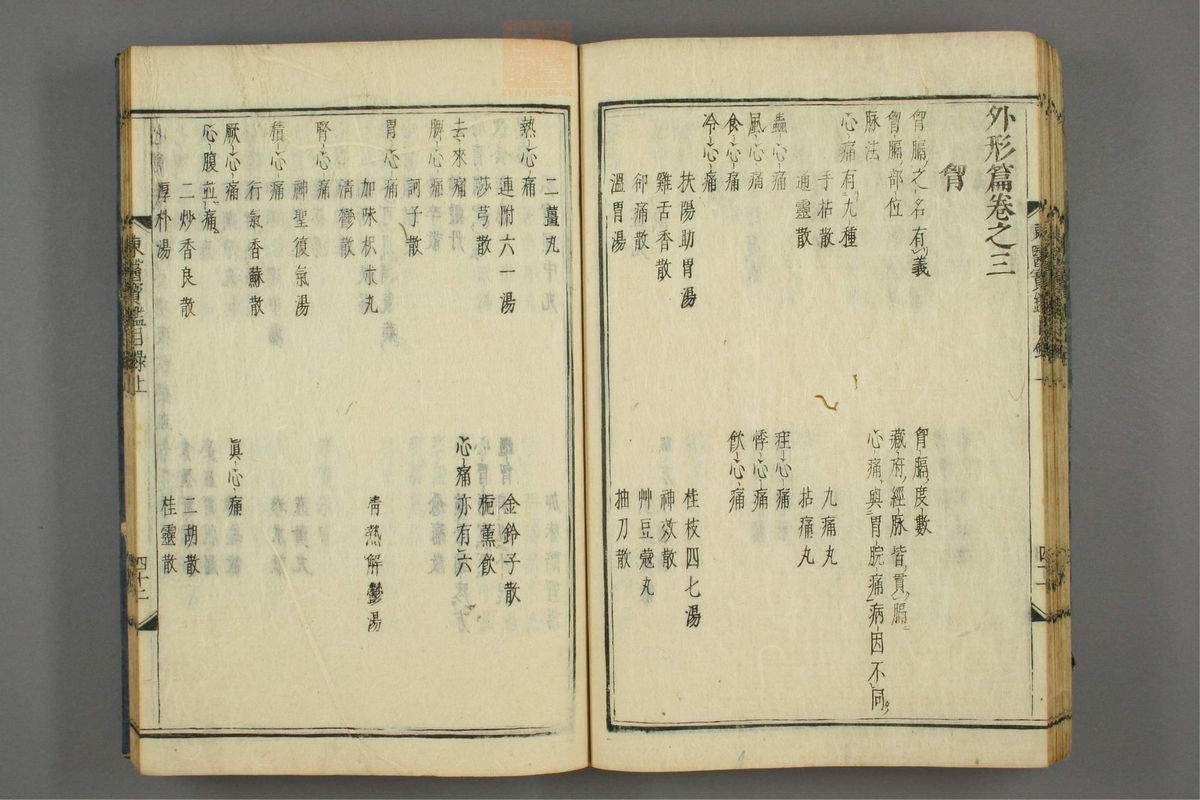 外形篇卷之三
胷
胷膈之名有義
胷膈度數
胷膈部位
藏府經脉皆貫膈
脉法
心痛與胃脘痛病因不同
心痛有九種
手拈散
九痛丸
通靈散
拈痛丸
蟲心痛
疰心痛
風心痛
悸心痛
食心痛
飲心痛
冷心痛
扶陽助胃湯
桂枝四七湯
雞舌香散
神效散
卻痛散
艸豆蔻丸
溫胃湯
抽刀散
二薑丸
熱心痛
連附六一湯
金鈴子散
莎芎散
梔薰飲
去來痛
心痛亦有六
脾心痛
訶子散
胃心痛
加味枳朮丸
清熱解鬱湯
清鬱散
腎心痛
神聖復氣湯
積心痛
行氣香蘇散
厥心痛
眞心痛
心腹並痛
二炒香良散
二胡散
厚朴湯
桂靈散
東醫寶鑑目錄上
四十二